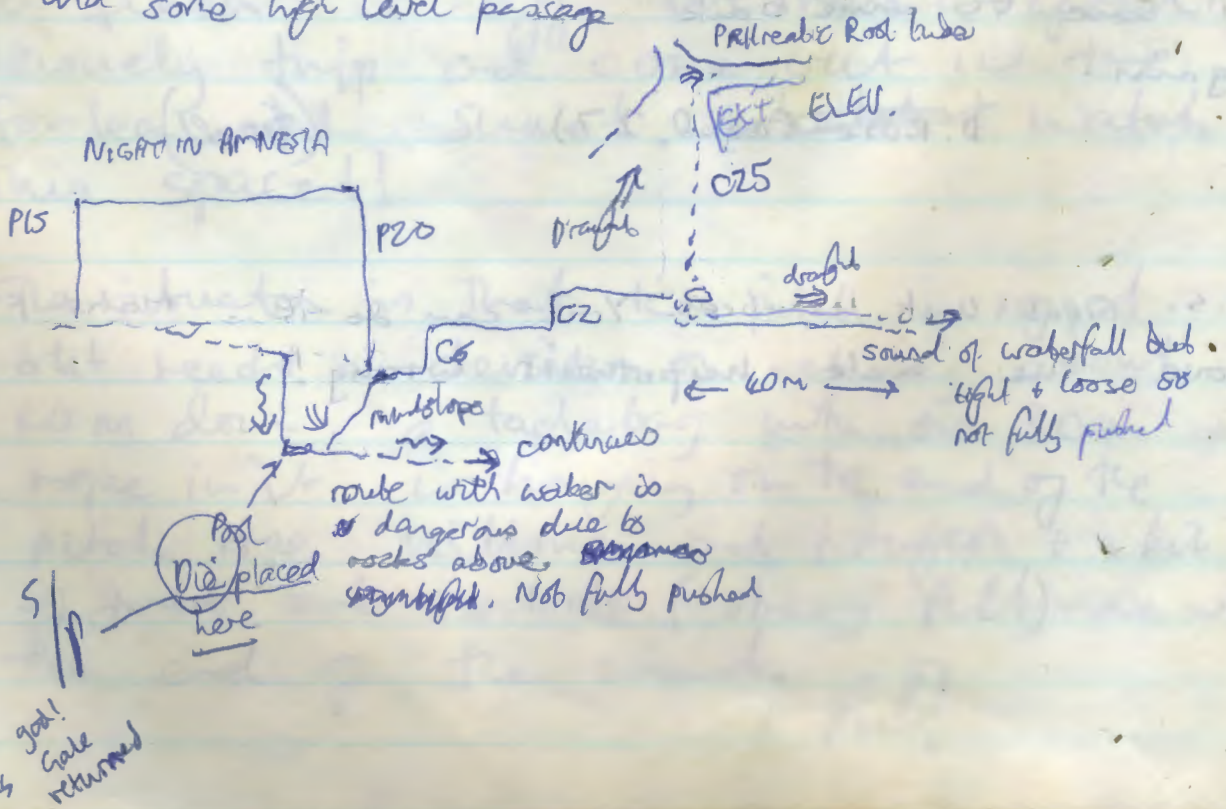 and some high level passage
PHreatic Roof tube
EXT
ELEV.
NIGHT IN AMNESIA
P15
P20
C25
Draught
draught
C2
C6
sound of waterfall but
tight & loose so
not fully pushed
← 40m →
mudslope
continues
route with water is
dangerous due to
rocks above.
Not fully pushed
Pool
Die placed
here
S/P
god!
Gale
returned